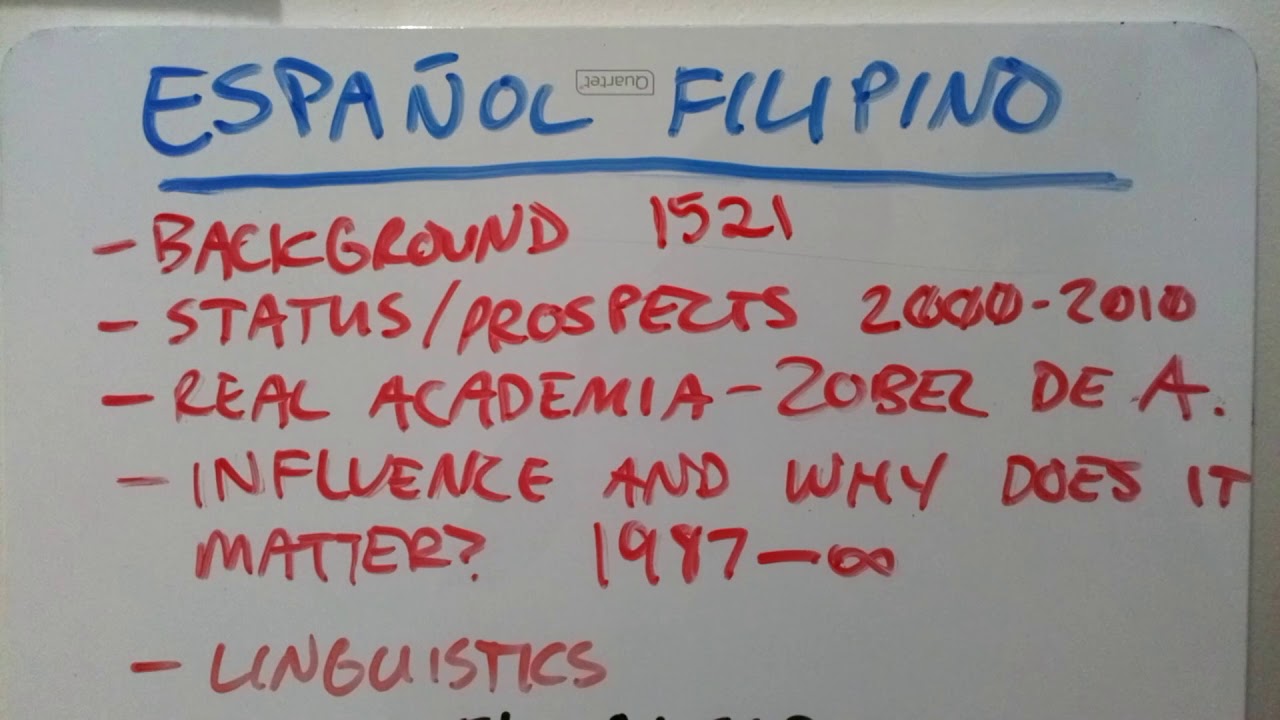 ESPAÑOL FILIPINO
Quartet
- BACKGROUND 1521
- STATUS/PROSPECTS 2000-2010
- REAL ACADEMIA - ZOBEL DE A.
- INFLUENCE AND WHY DOES IT
MATTER? 1987-∞
- LINGUISTICS